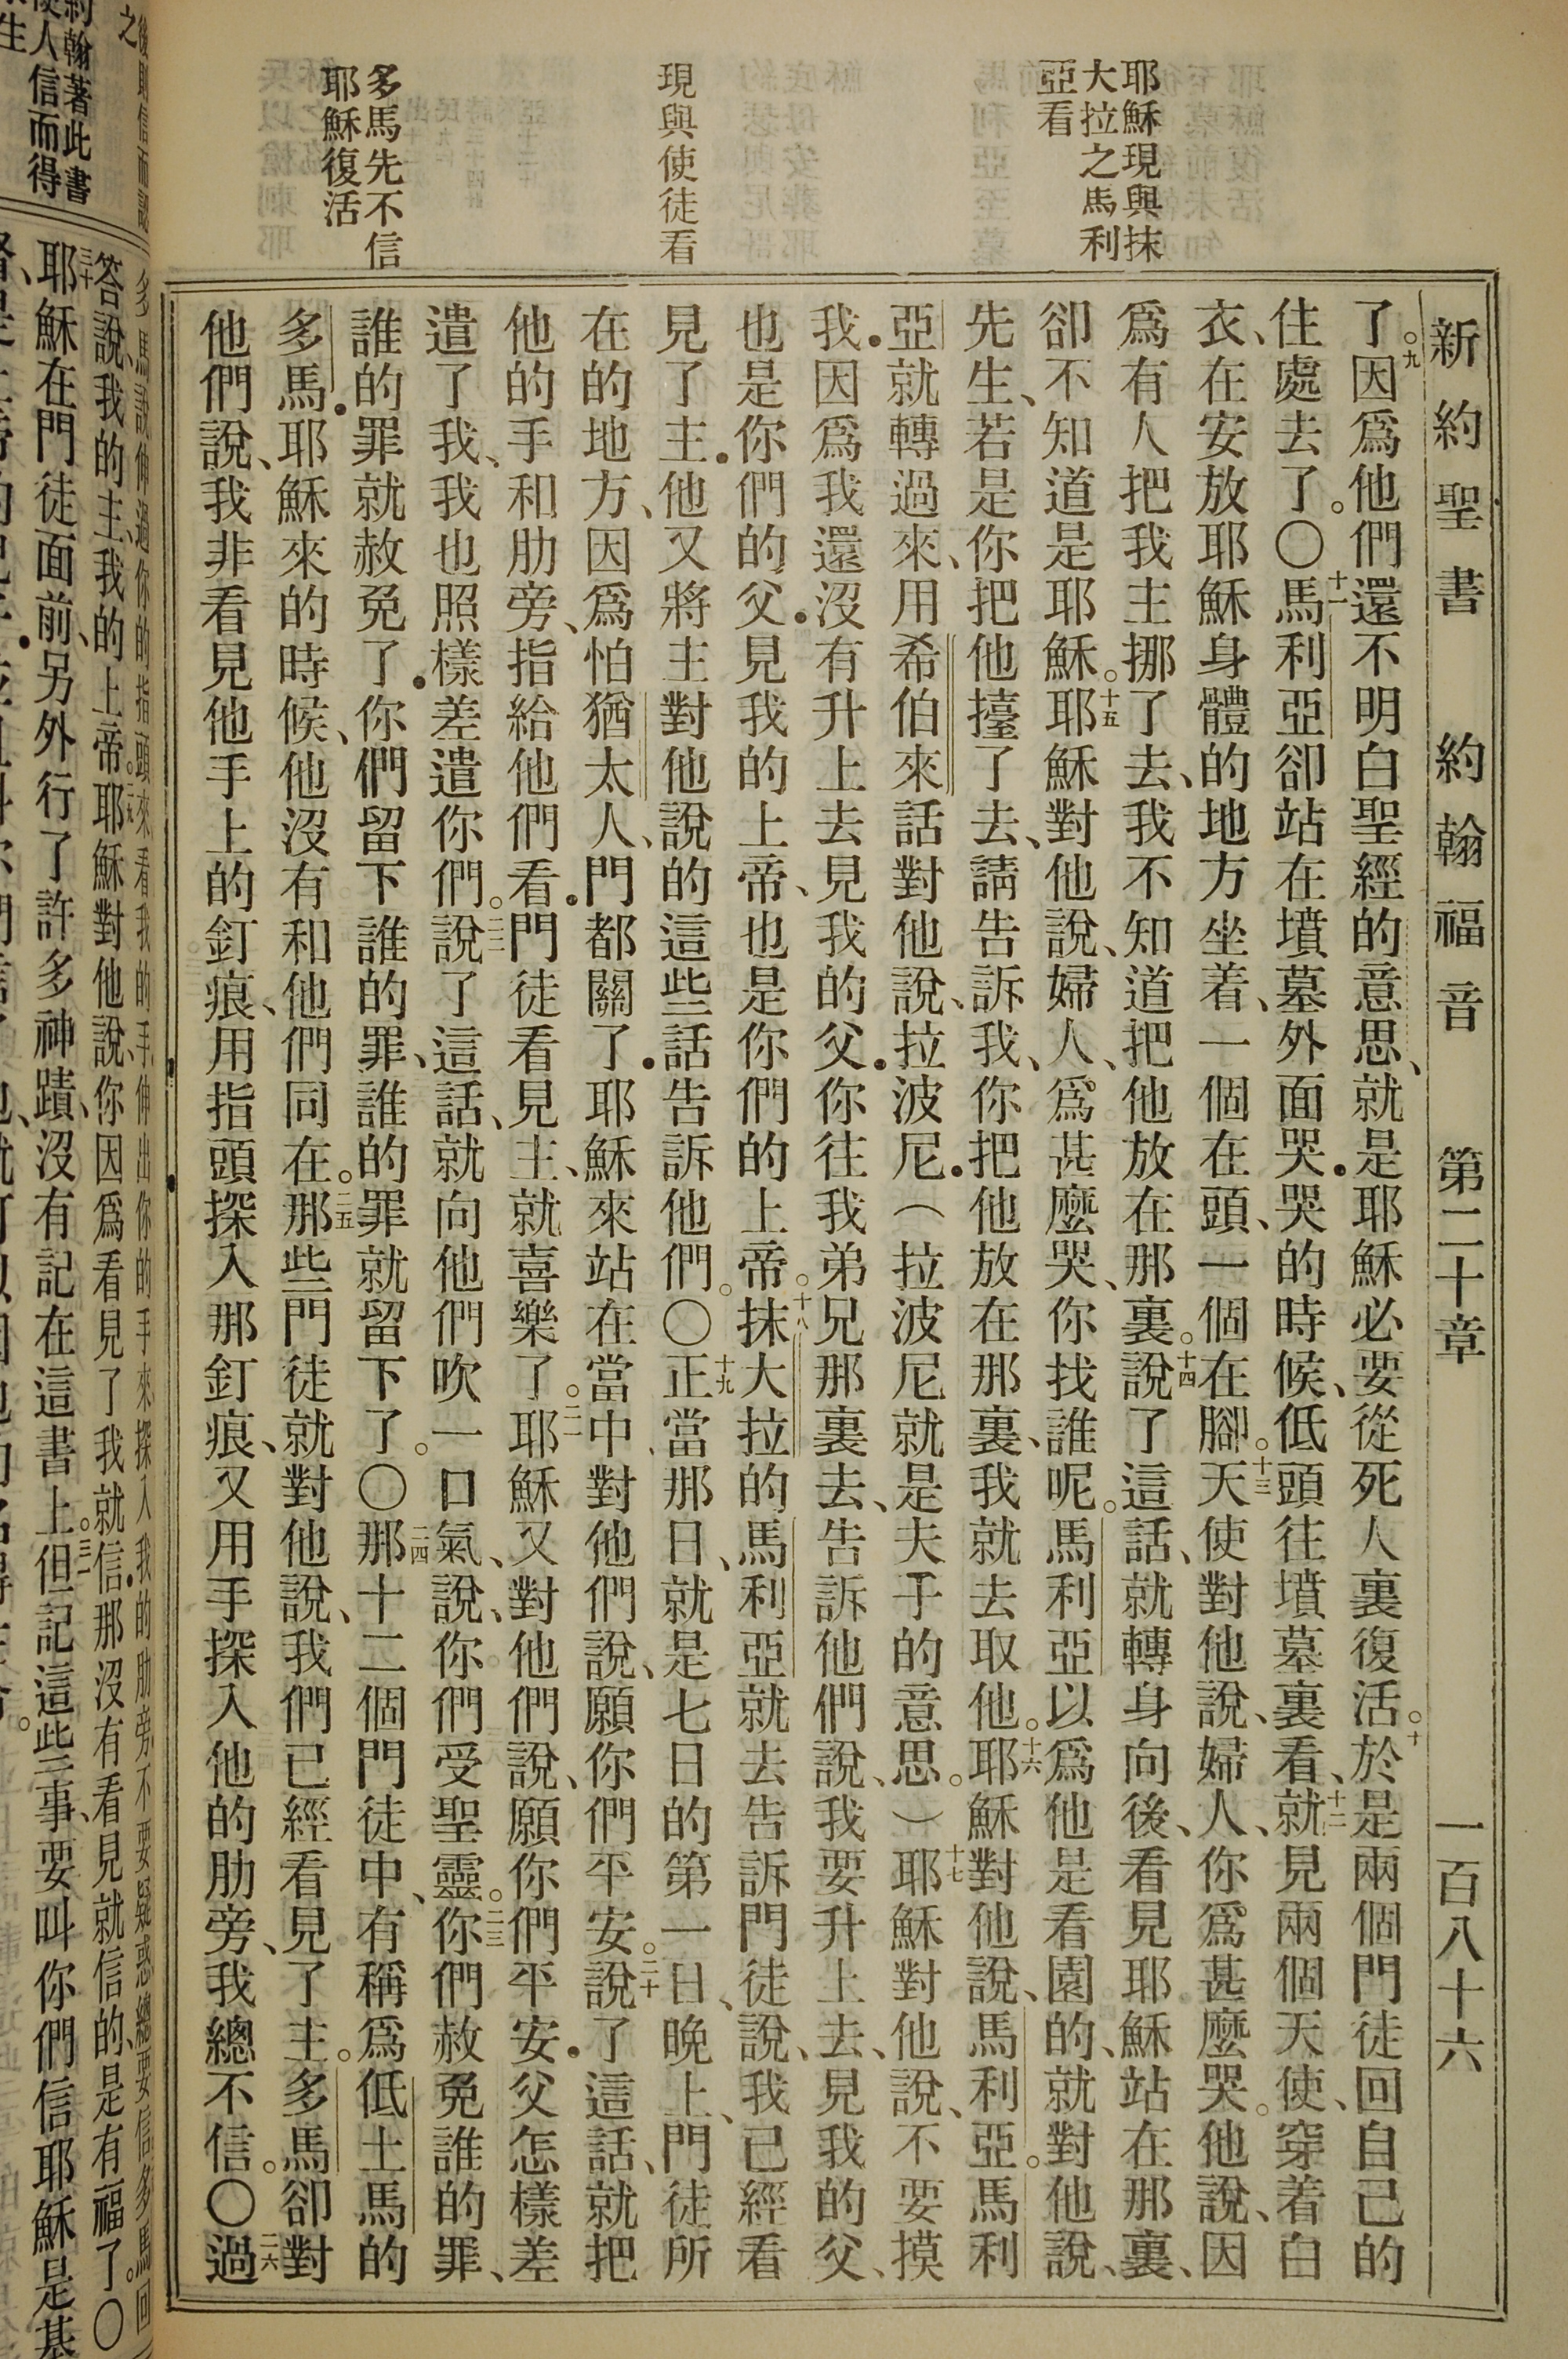 耶穌現與抹
大拉之馬利
亞看
現與使徒看
多馬先不信
耶穌復活
新約聖書 約翰福音 第二十章 一百八十六
了。九因爲他們還不明白聖經的意思、就是耶穌必要從死人裏復活。十於是兩個門徒回自己的
住處去了。〇十一馬利亞卻站在墳墓外面哭•哭的時候、低頭往墳墓裏看、十二就見兩個天使、穿着白
衣、在安放耶穌身體的地方坐着、一個在頭、一個在腳。十三天使對他說、婦人、你爲甚麼哭。他說、因
爲有人把我主挪了去、我不知道把他放在那裏。十四說了這話、就轉身向後、看見耶穌站在那裏、
卻不知道是耶穌。十五耶穌對他說、婦人、爲甚麼哭、你找誰呢。馬利亞以爲他是看園的、就對他說、
先生、若是你把他擡了去、請告訴我、你把他放在那裏、我就去取他。十六耶穌對他說、馬利亞。馬利
亞就轉過來、用希伯來話對他說、拉波尼•（拉波尼就是夫子的意思。）十七耶穌對他說、不要摸
我•因爲我還沒有升上去見我的父•你往我弟兄那裏去、告訴他們說、我要升上去、見我的父、
也是你們的父•見我的上帝、也是你們的上帝。十八抹大拉的馬利亞就去告訴門徒說、我已經看
見了主•他又將主對他說的這些話告訴他們。〇十九正當那日、就是七日的第一日、晚上、門徒所
在的地方、因爲怕猶太人、門都關了•耶穌來站在當中對他們說、願你們平安。二十說了這話、就把
他的手和肋旁、指給他們看•門徒看見主、就喜樂了。二一耶穌又對他們說、願你們平安•父怎樣差
遣了我、我也照樣差遣你們。二二說了這話、就向他們吹一口氣、說、你們受聖靈。二三你們赦免誰的罪、
誰的罪就赦免了•你們留下誰的罪、誰的罪就留下了。〇二四那十二個門徒中、有稱爲低土馬的
多馬•耶穌來的時候、他沒有和他們同在。二五那些門徒就對他說、我們已經看見了主。多馬卻對
他們說、我非看見他手上的釘痕、用指頭探入那釘痕、又用手探入他的肋旁、我總不信。〇二六過
約翰著此書
使人信而得
多馬說伸過你的指頭來看我的手伸出你的手來探入我的肋旁不要疑惑總要信多馬回
答說、我的主、我的上帝。二九耶穌對他說、你因爲看見了我就信•那沒有看見就信的、是有福了。〇
三十耶穌在門徒面前、另外行了許多神蹟、沒有記在這書上。三一但記這些事、要叫你們信耶穌是基